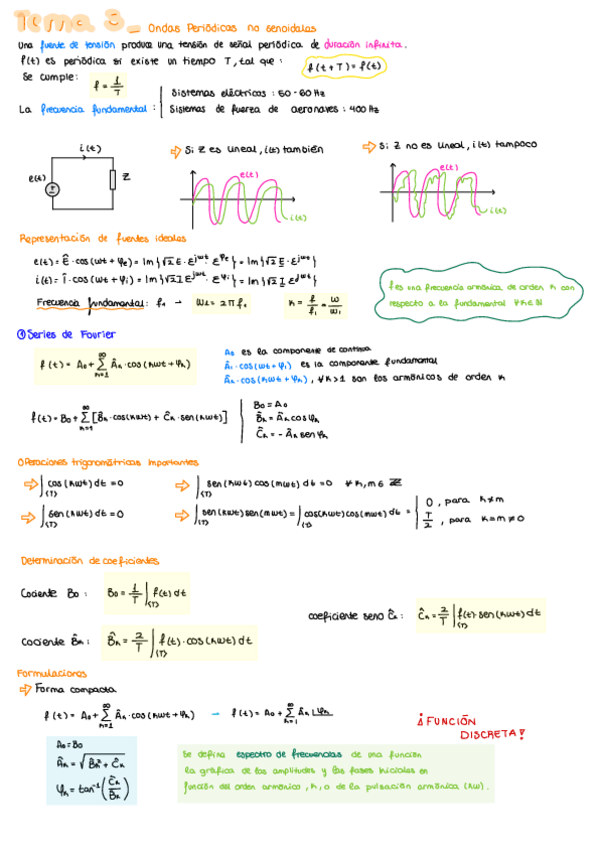 Tema 3_ Ondas Periódicas no senoidales
Una fuente de tensión produce una tensión de señal periódica de duración infinita.
f(t) es periódica si existe un tiempo T, tal que : f(t+T) = f(t)
Se cumple: f = 1/T
La frecuencia fundamental : Sistemas eléctricos : 50-60 Hz
Sistemas de fuerza de aeronaves : 400 Hz
i(t)
e(t)
Z
⇨ Si Z es lineal, i(t) también
e(t)
i(t)
⇨ Si Z no es lineal, i(t) tampoco
e(t)
i(t)
Representación de fuentes ideales
e(t) = Ê · cos(ωt + φe) = Im{√2 E · Ɛ^jωt · Ɛ^φe} = Im{√2 E · Ɛ^jωt}
i(t) = Î · cos(ωt + φi) = Im{√2 I Ɛ^jωt · Ɛ^φi} = Im{√2 I Ɛ^jωt}
Frecuencia fundamental : f₁ → ω₁ = 2πf₁ k = f/f₁ = ω/ω₁
f es una frecuencia armónica, de orden k con
respecto a la fundamental ∀k∈ℕ
① Series de Fourier
f(t) = A₀ + ∞∑k=1 Âk · cos(kωt + φk)
A₀ es la componente de continua
Â₁ · cos(ωt + φ₁) es la componente fundamental
Âk · cos(kωt + φk), ∀k>1 son los armónicos de orden k
f(t) = B₀ + ∞∑k=1 [B̂k · cos(kωt) + Ĉk · sen(kωt)]
B₀ = A₀
B̂k = Âk cos φk
Ĉk = - Âk sen φk
Operaciones trigonométricas importantes
⇨ ∫(T) cos(kωt) dt = 0 ⇨ ∫(T) sen(kωt) cos(mωt) dt = 0 ∀ k,m ∈ ℤ
⇨ ∫(T) sen(kωt) dt = 0 ⇨ ∫(T) sen(kωt) sen(mωt) = ∫(T) cos(kωt) cos(mωt) dt = { 0 , para k≠m
T/2 , para k=m≠0
Determinación de coeficientes
Cociente B₀ : B₀ = 1/T ∫(T) f(t) dt
coeficiente seno Ĉk : Ĉk = 2/T ∫(T) f(t) · sen(kωt) dt
Cociente B̂k : B̂k = 2/T ∫(T) f(t) · cos(kωt) dt
Formulaciones
⇨ Forma compacta
f(t) = A₀ + ∞∑k=1 Âk · cos(kωt + φk) → f(t) = A₀ + ∞∑k=1 Âk ∠φk
¡ FUNCIÓN
DISCRETA !
A₀ = B₀
Âk = √(B̂k² + Ĉk)
φk = tan⁻¹(Ĉk/B̂k)
Se define espectro de frecuencias de una función
la gráfica de las amplitudes y las fases iniciales en
función del orden armónico, k, o de la pulsación armónica (kω).